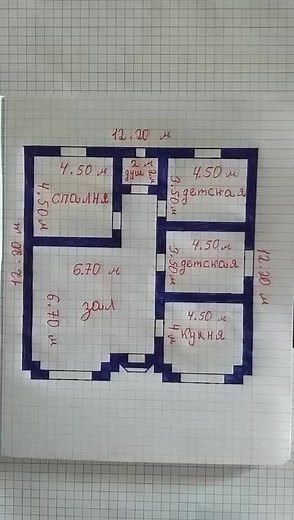 12.20 м
4.50 м
4.50 м
спалня
2 м
душ
2 м
4.50
3.50 м
детская
12.20 м
4.50 м
3.50 м
детская
12.20 м
6.70 м
6.70 м
зал
4.50 м
4 м
кухня